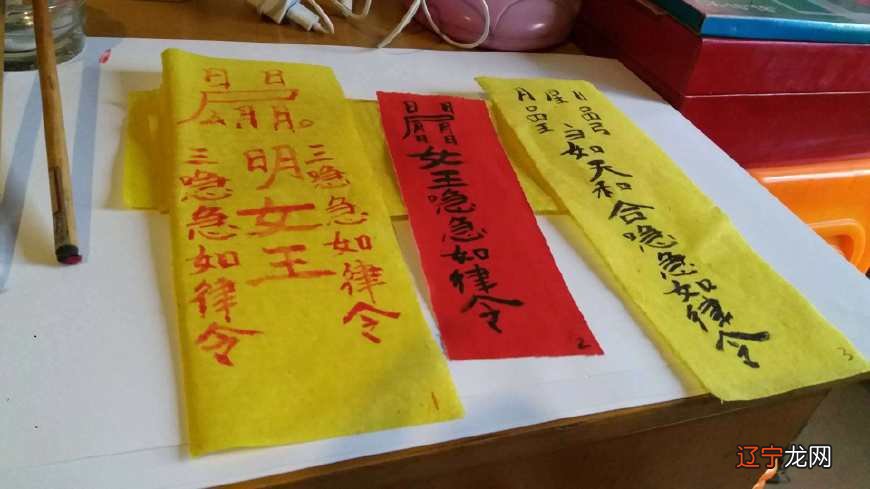 日 日
明女王
三喼急如律令
三喼急如律令
1
日 日
女王喼急如律令
2
如天和合喼急如律令
3
辽宁龙网